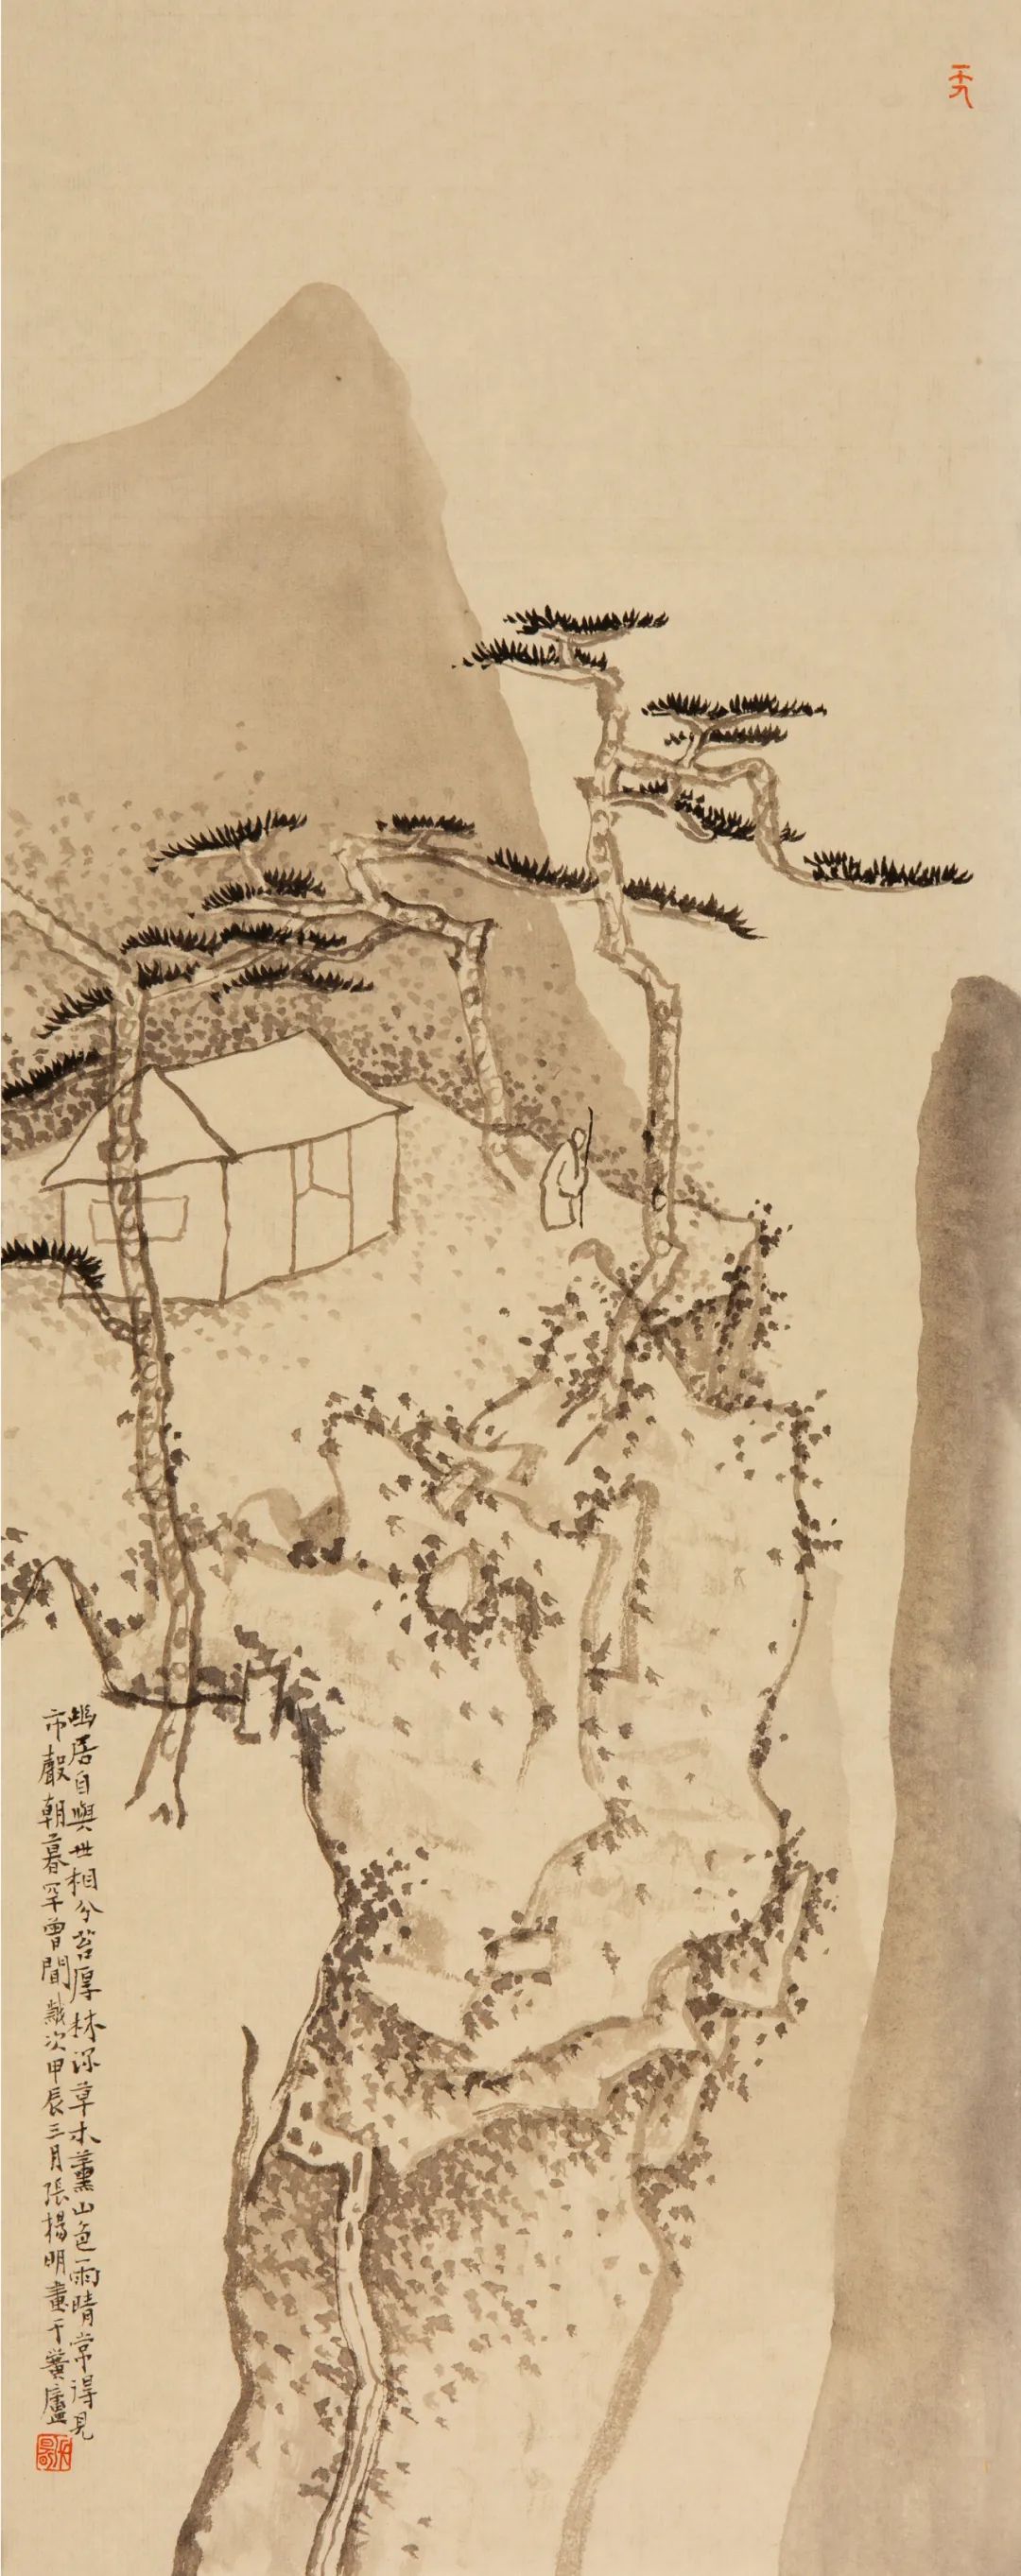 幽居自與世相分苔厚林深草木薰山色雨晴常得見
市聲朝暮罕曾聞歲次甲辰三月張楊明畫于黌廬